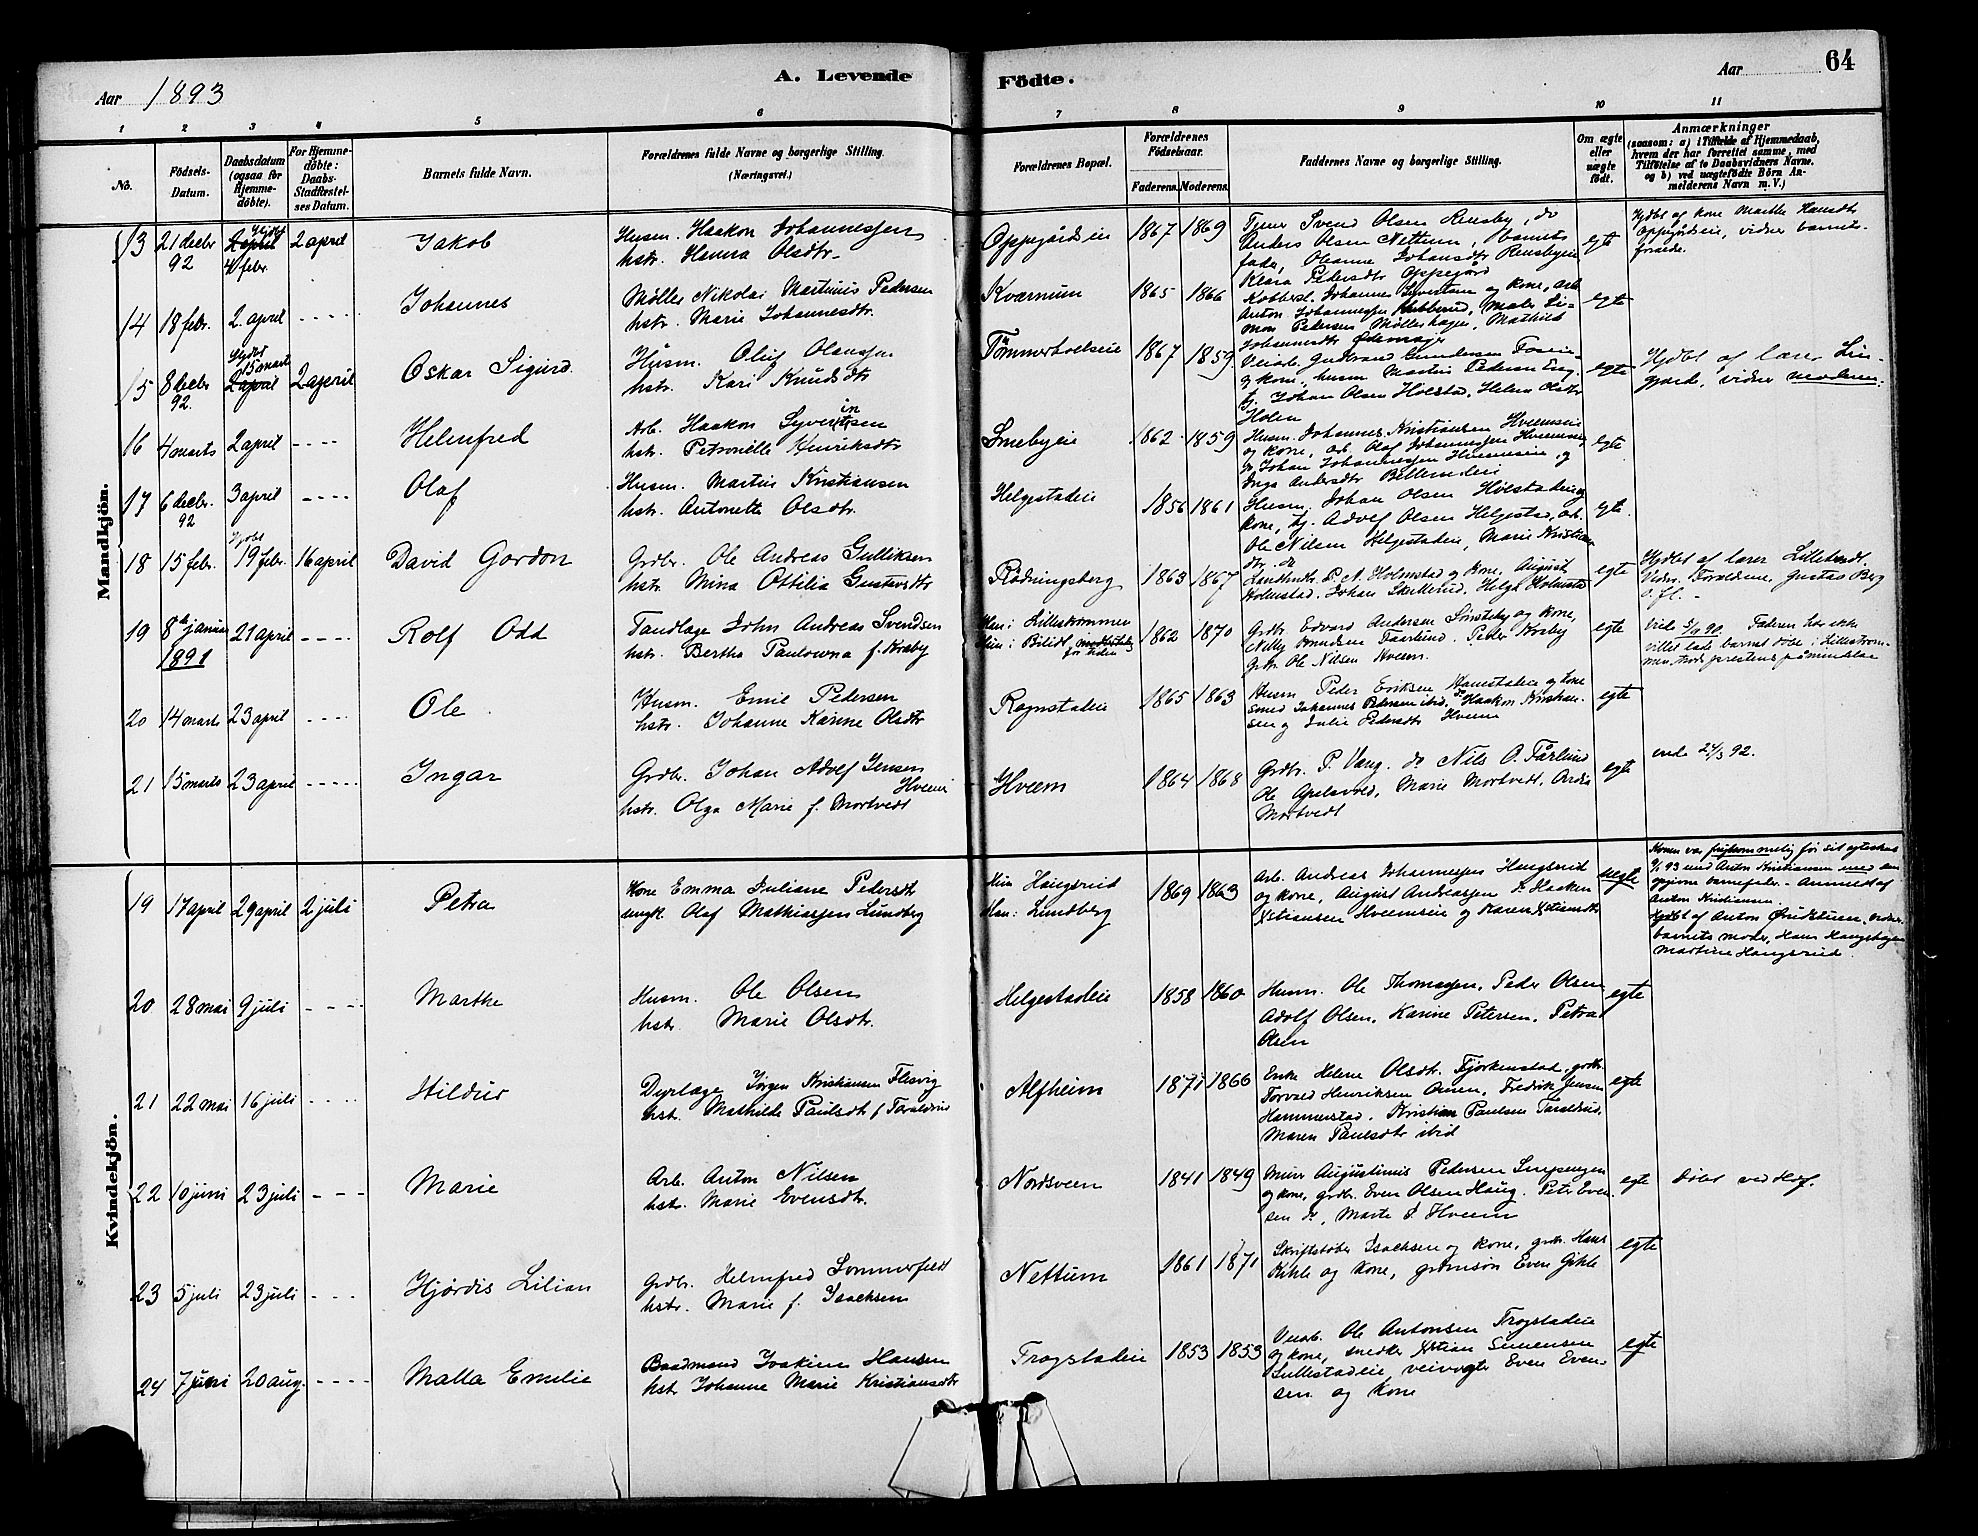 Aar 1893
A. Levende Födte.
Aar 64
1 2 3 4 5 6 7 8 9 10 11
No.
Födsels-Datum.
Daabsdatum (ogsaa for Hjemme-döbte).
For Hjemme-döbte: Daabs-Stadfæstel-ses Datum.
Barnets fulde Navn.
Forældrenes fulde Navne og borgerlige Stilling. (Næringsvei.)
Forældrenes Bopæl.
Forældrenes Födselsaar.
Faderens. Moderens.
Faddernes Navne og borgerlige Stilling.
Om ægte eller uægte födt.
Anmærkninger
(saasom: a) i Tilfælde af Hjemmedaab, hvem der har forrettet samme, med Tilföielse af to Daabsvidners Navne. og b) ved uægtefödte Börn Anmelderens Navn m. V.)
Mandkjön.
13 21 decbr 92 2 april 4 febr. 2 april Jakob
Husm. Haakon Johannessen
hstr. Hanna Olsdtr.
Oppegårdseie 1867 1869
Tjener Svend Olsen Rensby, do
Anders Olsen Nettum, barnets
fader, Oleanne Johansdtr Rensbyeie
Klara Pedersdtr Oppegård
egte
Hjdbt af kone Marthe Hansdtr
Oppegårdseie, vidner barnets
forælde.
14 18 febr. 2. april - - - - Johannes
Møller Nikolai Martinus Pedersen
hstr. Marie Johannesdtr.
Kværnum 1865 1866
Johannes Syvertsen og kone, arb.
Anton Johannesen Kubberud, maler Si-
mon Pedersen Møllerhagen, Mathild
Johannesdtr
egte
15 8 decbr 92. 15 mart 2 april 2 april Oskar Sigurd.
Husm. Oluf Olaussen
hstr. Kari Knudsdtr
Tømmerholseie 1867 1859
Veiarb. Gulbrand Gundersen
og kone, husm Martin Pedersen Eng,
tj. Johan Olsen Holstad, Helene Olsdtr
Holen
egte
Hjdbt af lærer Lin-
gjerde, vidner moderen.
16 4 marts 2 april - - - - Helmfred
Arb. Haakon Syvertsen
hstr. Petronelle Henriksdtr
Smebyeie 1862 1859
Husm. Johannes Kristiansen Hveemseie
og kone, arb. Olaf Johannessen Hveemseie
do Johan Johannessen Hveemseie, og
Inga Andersdtr
egte
17 6 decbr. 92 3 april - - - - Olaf
Husm. Martin Kristiansen
hstr. Antonette Olsdtr.
Helgestadeie 1856 1861
Husm. Johan Olsen Holstadeie og
kone, tj. Adolf Olsen Helgestad, arb.
Ole Nilsen Helgestadeie, Marie Kristians
dtr. do
egte.
18 15 febr. 19 febr. 16 april David Gordon
Grdbr. Ole Andreas Gulliksen
hstr. Mina Ottilia Gustavsdtr
Rødningsberg 1863 1867
Landhdl. P. N. Holmstad og kone, August
Holmstad, Johan Skullerud, Helga Holmstad
egte
Hjdbt af lærer Lillebrandt.
Vidner. Forældrene, Gustav Berg
o. fl.
19 8de januar 1891 21 april - - - - Rolf Odd
Tandlæge John Andreas Svendsen
hstr. Bertha Paulowna f. Kraby
Han: i Lillestrømmen
Hun: i Bilidt for tiden
1862 1870
Grdbr. Edvard Andersen Sønsteby og kone,
Nelly Knudsen Faarlund. Peter Kraby
Grdbr. Ole Nilsen Hveem.
egte
Faderen har ikke
villet lade barnet døbe i Lillestrøm-
men, trods prestens påmindelse
20 14 marts 23 april - - - - Ole
Husm. Emil Pedersen
hstr. Johanne Karine Olsdtr
Rognstadeie 1865 1863
Husm. Peder Eriksen Hanestadeie og kone
smed Johannes Pedersen ibid, do Haakon Kristian-
sen og Julie Pedersdtr Hveem
egte
21 15 marts 23 april - - - - Ingar
Grdbr. Johan Adolf Jensen Hveem
hstr. Olga Marie f. Mortvedt
Hveem 1864 1868
Grdbr. P. Vang. do Nils O. Fårlund
Ole Apelsvold, Marie Mortvedt,
Mortvedt
egte
viede 24/3 92.
Kvindekjön.
19 17 april 29 april 2 juli Petra
Kone Emma Juliane Pedersdt
ungk. Olaf Mathiassen Lundberg
Hun Haugsrud
Han: Lundberg
1869 1863
Arb. Andreas Johannessen Haugsrud
og kone, August Andreassen do Haaken
Xtiansen Hveemseie og Karen Xtiansdtr
uegte
Konen var frugtsommelig før sit egteskab
9/1 93 med Anton Kristiansen med den
opgivne barnefader. - Anmeldt af
Anton Kristiansen.
Hjdbt af Anton Qvidstuen, vidner
barnets moder, Hans Haugshagen
Martine Haugsrud.
20 28 mai 9 juli - - - - Marthe
Husm. Ole Olsen
hstr. Marie Olsdtr.
Helgestadeie 1858 1860
Husm. Ole Thomassen, Peder Olsen
Adolf Olsen, Karine Petersen, Petra
Olsen
egte
21 22 mai 16 juli - - - - Hildur
Dyrlæge Jørgen Kristiansen Flesvig
hst. Mathilde Paulsdt f Taraldrud
Alfheim 1871 1866
Enke Helene Olsdt. Fjørkenstad, grdbr.
Torvald Henriksen Amen, Fredrik Jensen
Hammerstad, Kristian Paulsen Taraldrud,
Maren Paulsdtr ibid
egte
22 10 juni 23 juli - - - - Marie
Arb. Anton Nilsen
hstr. Marie Evensdtr.
Nordsveen 1841 1849
Murer Augustinus Pedersen
og kone, grdbr. Even Olsen Haug. Peter Even
sen do, Marte P. Hveem
egte
Døbt ved Hof.
23 5 juli 23 juli - - - Hjørdis Lilian
Grdbr. Helmfred Sommerfeldt
hstr. Marie f. Isachsen
Nettum 1861 1871
Skriftstøber Isachsen og kone, grdbr. Hans
Kihle og kone, grdmsøn Even Gihle
egte
24 7 juni 20 aug. - - - - Malla Emilie
Baadmand Joakim Hansen
hst Johanne Marie Kristiansdtr
Trogstadeie 1853 1853
Veiarb. Ole Antonsen Trogstadeie
og kone, snedker Xtian Simensen
Sullestadeie veivogter Even Even-
sen og kone
egte